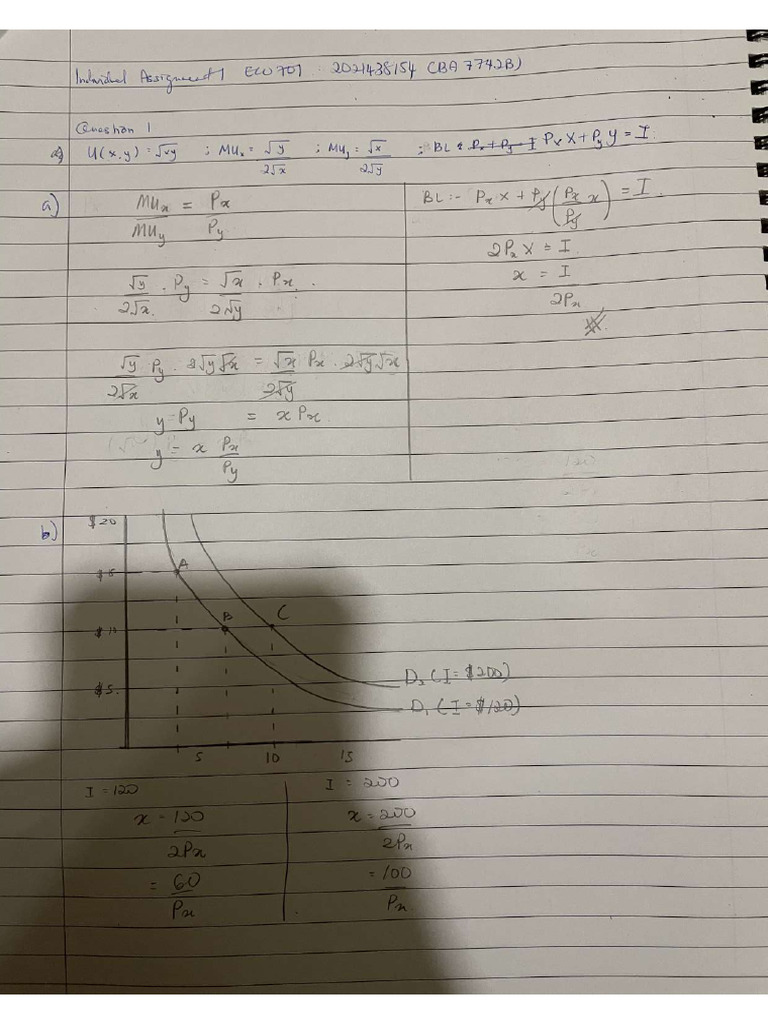 Individual Assignment 1 ECO 701 : 2021438154 (BA 7742B)
Question 1
a) U(x,y) = √xy ; MUx = √y / 2√x ; MUy = √x / 2√y ; BL : Px + Py = I Px X + Py Y = I
a) MUx / MUy = Px / Py
√y / 2√x . Py = √x / 2√y . Px
√y / 2√x Py . 2√y√x = √x / 2√y Px . 2√y√x
y Py = x Px
y = x Px / Py
BL :- Px X + Py (Px / Py x) = I
2Px X = I
x = I / 2Px
b) $20
A
B C
$5
D2 (I = $200)
D1 (I = $120)
5 10 15
I = 120
x = 120 / 2Px
= 60 / Px
I = 200
x = 200 / 2Px
= 100 / Px